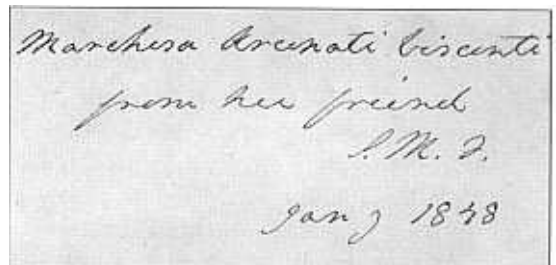 Marchesa Arconati Visconti
from her friend
S. M. F.
Jan 7 1848